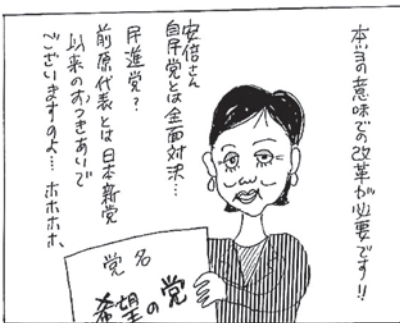 本当の意味での改革が必要です!!
安倍さん
自民党とは全面対決…
民進党?
前原代表とは日本新党
以来のおつきあいで
ございますのよ… ホホホホ、
党名
希望の党